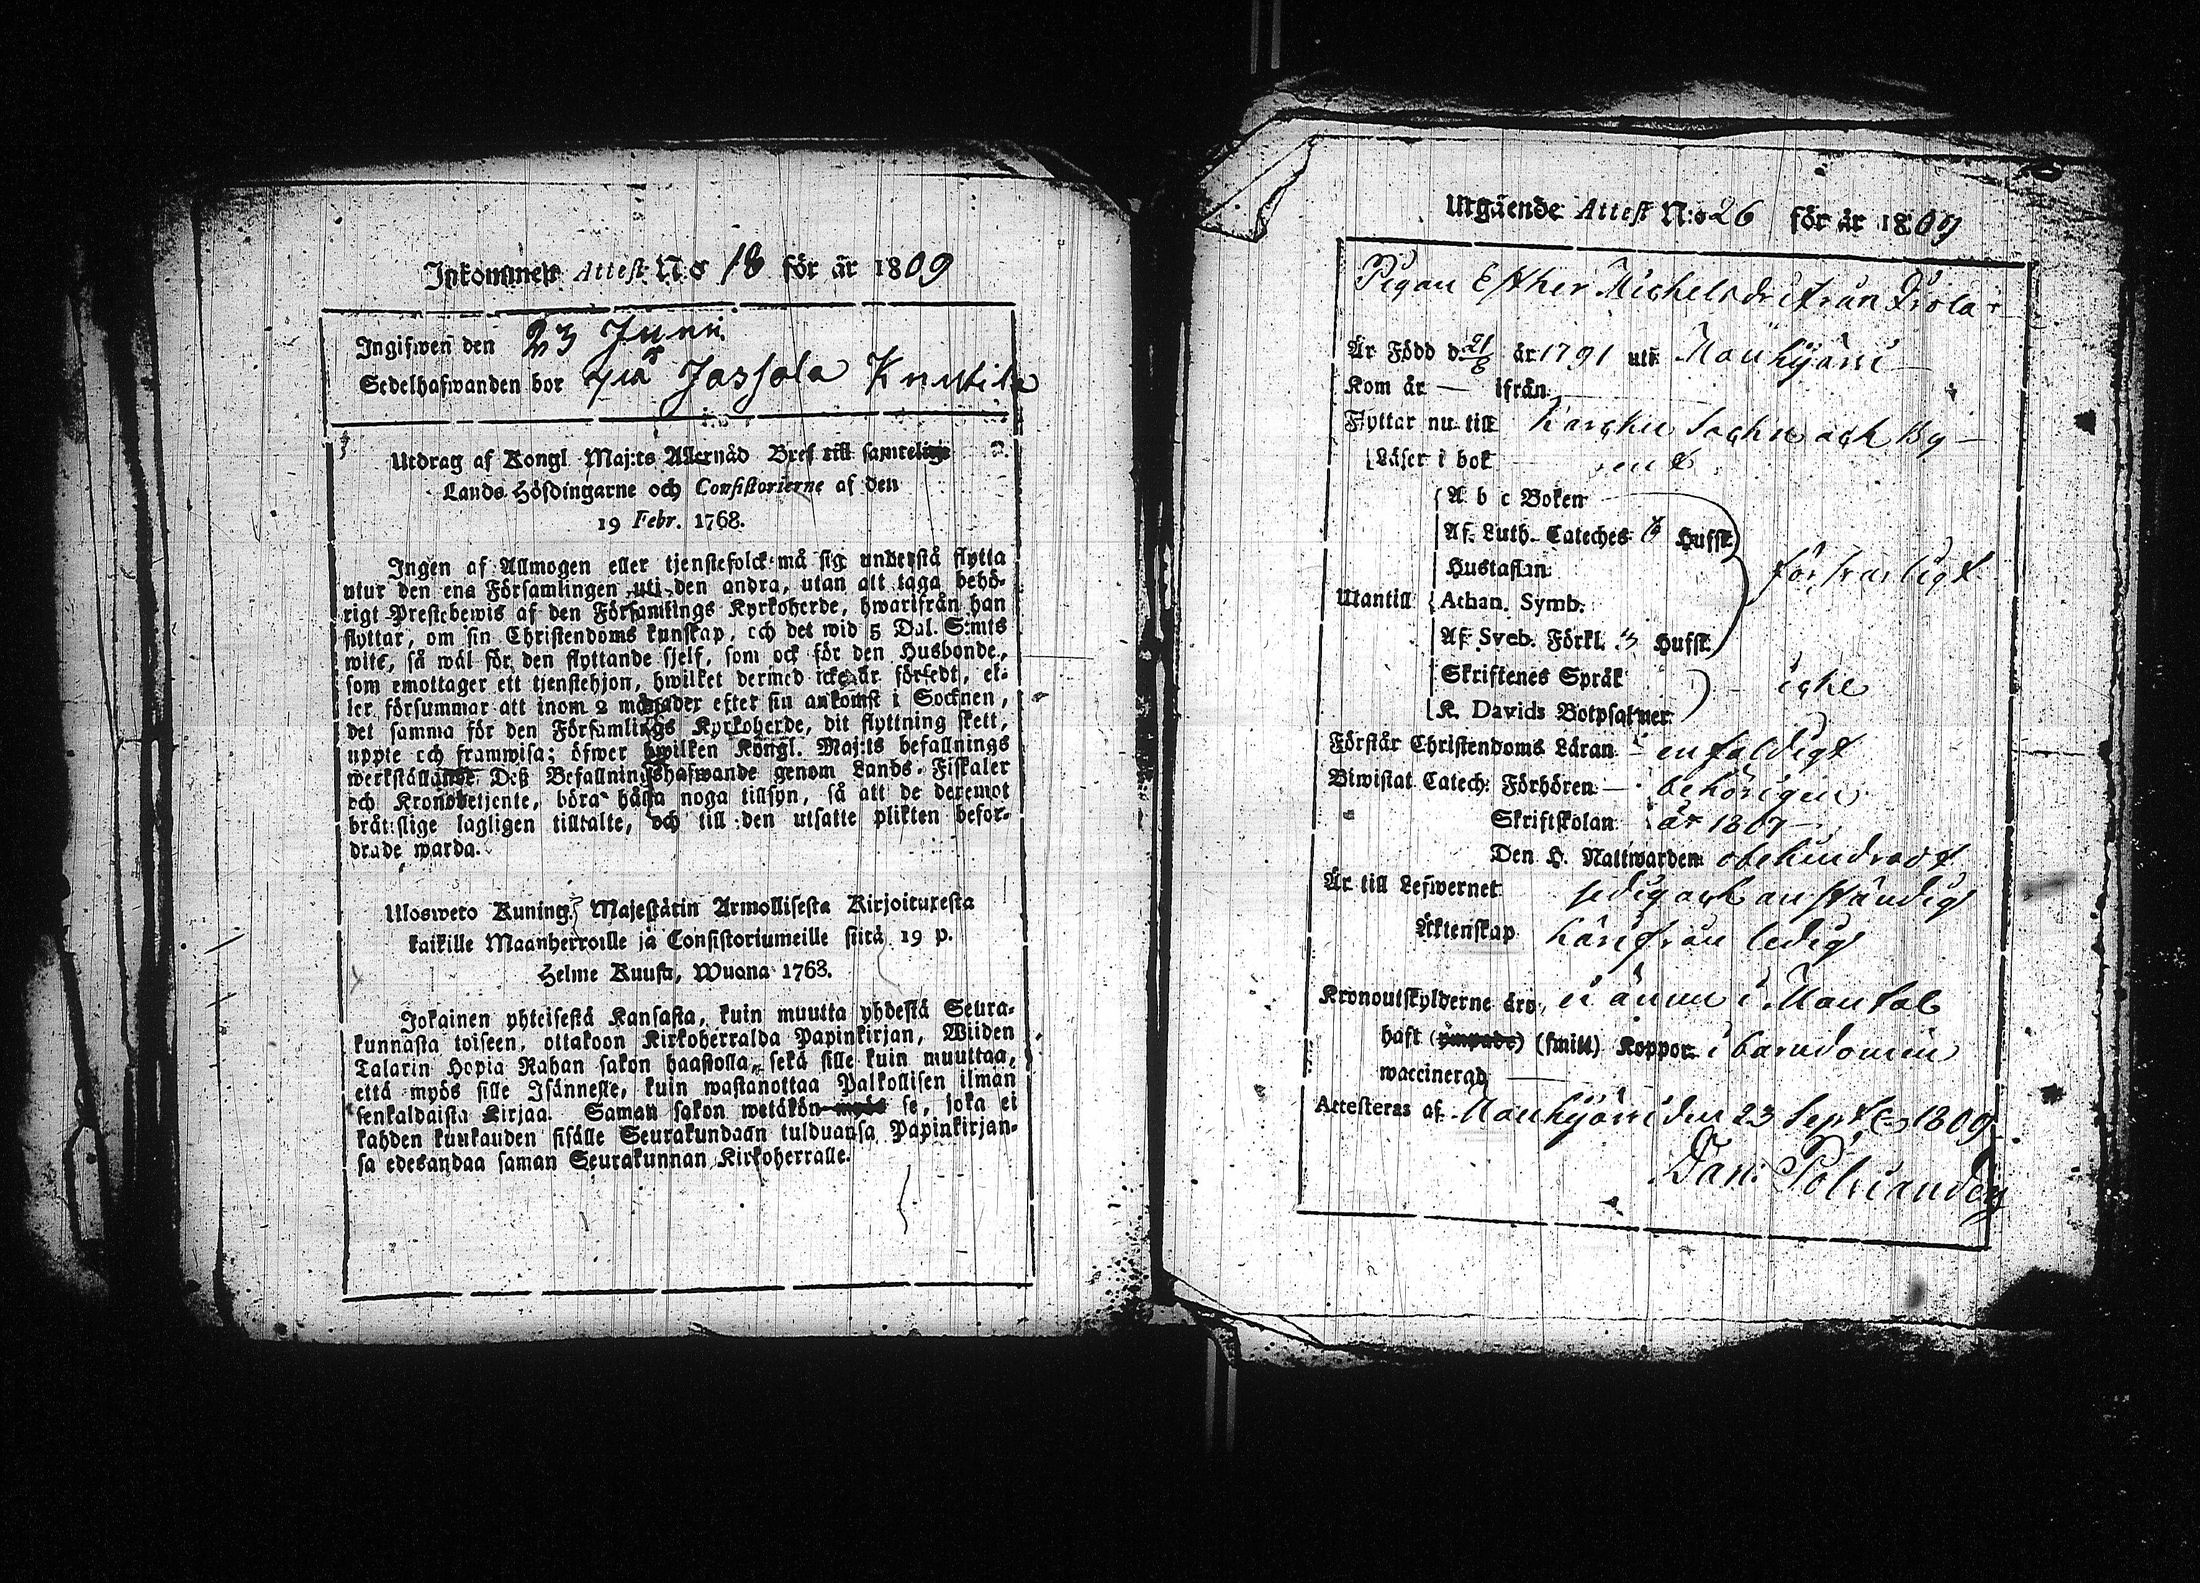 Inkommen Attest N:o 18 för år 1809
Ingifwen den 23 Junii
Sedelhafwanden bor på Jassola Knutila
Utdrag af Kongl Maj:ts Allernåd Bref till samtelige
Lands Höfdingarne och Consistorierne af den
19 Febr. 1768.
Ingen af Allmogen eller tjenstefolck må sig understå flytta
utur den ena Församlingen uti den andra, utan att taga behö-
rigt Prestebewis af den Församlings Kyrkoherde, hwarifrån han
flyttar, om sin Christendoms kunskap, och det wid 5 Dal. S:mts
wite, så wäl för den flyttande sjelf, som ock för den Husbonde,
som emottager ett tjenstehjon, hwilket dermed icke är försedt, el-
ler försummar att inom 2 månader efter sin ankomst i Socknen,
det samma för den Församlings Kyrkoherde, dit flyttning skett,
uppte och framwisa; öfwer hwilken Kongl. Maj:ts befallnings
werkställande Deß Befallningshafwande genom Lands-Fiskaler
och Kronobetjente, böra hålla noga tillsyn, så att de deremot
bråtslige lagligen tilltalte, och till den utsatte plikten befor-
drade warda.
Ulosweto Kuning. Majestätin Armollisesta Kirjoituxesta
kaikille Maanherroille ja Consistoriumeille siitä 19 p.
Helme Kuusa, Wuona 1763.
Jokainen yhteisestä Kansasta, kuin muutta yhdestä Seura-
kunnasta toiseen, ottakoon Kirkoherralda Papinkirjan, Wiiden
Talarin Hopia Rahan sakon haastolla, sekä sille kuin muuttaa,
että myös sille Isännelle, kuin wastanottaa Palkollisen ilman
senkaldaista Kirjaa. Saman sakon wetäkön myös se, joka ei
kahden kuukauden sisälle Seurakundaan tulduansa Papinkirjan-
sa edesandaa saman Seurakunnan Kirkoherralle.
Utgäende Attest N:o 26 för år 1809
Pigan Esther Michelsdr ifrån Prola
Är Född d. 21/6 år 1791 uti Mouhijärvi
Kom år — ifrån
Flyttar nu till Karkku Sochn och By
Läser i bok
A b c Boken
Af Luth. Cateches 6 Hufst.
Hustaflan
Mantill Athan. Symb. försvarligt
Af Sveb. Förkl. 3 Hufst.
Skriftenes Språk icke
K. Davids Botpsalmer
Förstår Christendoms Läran enfaldigt
Biwistat Catech: Förhören behörigen
Skriftskolan år 1807
Den H. Nattwarden obehindradt
Är till Lefwernet sedig och anständig
Äktenskap härifrån ledig
Kronoutskylderne äro, ei ännu i Mantal
haft (ympade) (smitt) Koppor i barndomen
waccinerad
Attesteras af Mouhijärvi den 23 Sept. 1809
Dan: Polviander